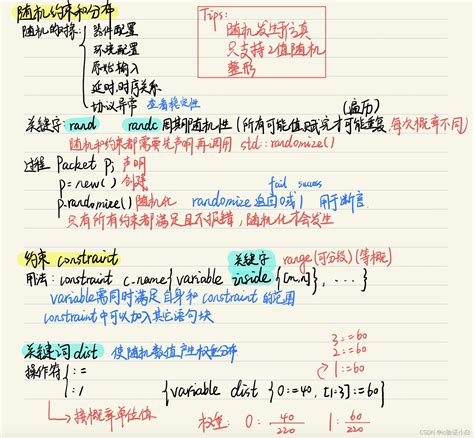 随机约束和分布
随机的对象: 器件配置
环境配置
原始输入
延时.时序关系
协议异常 查看稳定性
Tips:
随机发生于仿真
只支持2值随机
整形
(遍历)
关键字: rand randc 周期随机性 (所有可能值赋完才可能重复,每次概率不同)
随机和约束都需要先声明再调用 std::randomize()
过程 Packet p; 声明
p=new() 创建
fail success
p.randomize() 随机化 randomize返回0或1 用于断言
只有所有约束都满足且不报错,随机化才会发生
约束 constraint 关键字 range(可分级)(等概)
用法: constraint c_name{variable inside {[m,n]}, ...}
variable需同时满足自身和constraint的范围
constraint中可以加入其它语句块
关键词dist 使随机数值产生权重分布
3:=60
2:=60
1:=60
操作符 :=
:/ {variable dist {0:=40, [1:3]:=60}
按概率单位值 权重: 0: 40/220 1: 60/220
CSDN @ic验证小白